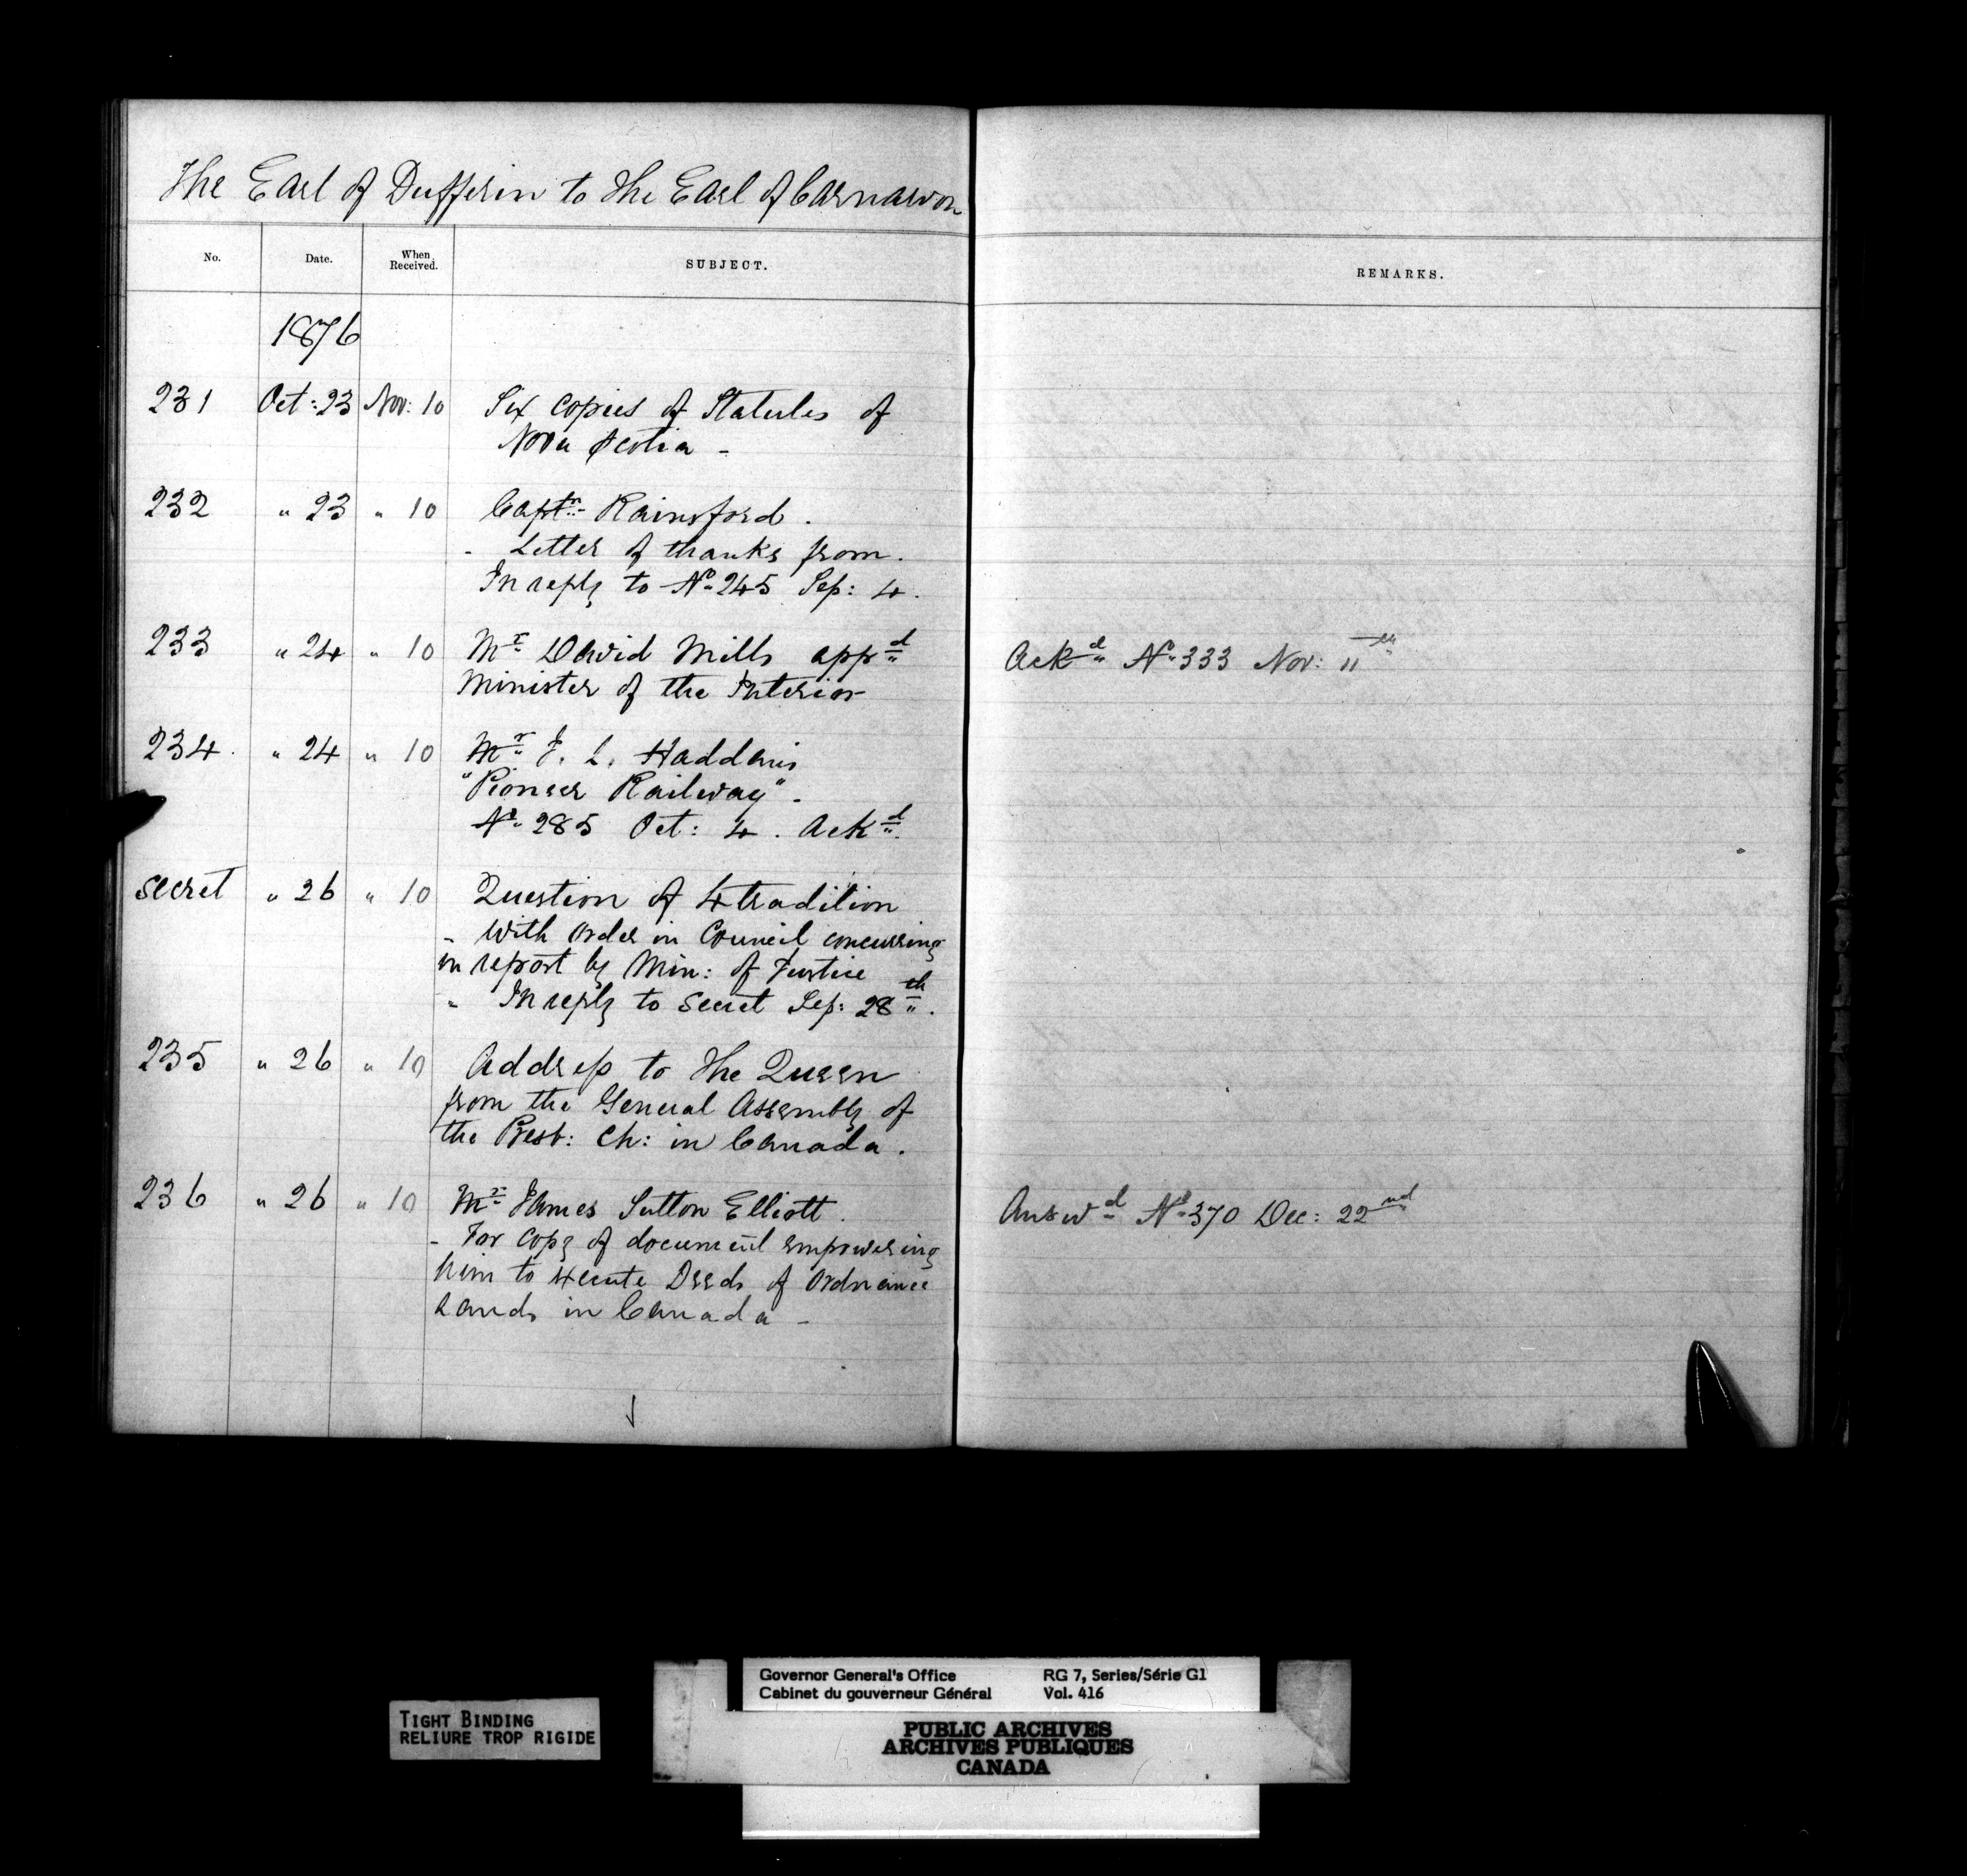 The Earl of Dufferin to the Earl of Carnarvon
No. Date. When Received. SUBJECT. REMARKS.
1876
231 Oct: 23 Nov: 10 Six copies of Statutes of
Nova Scotia -
232 " 23 " 10 Captn Rainsford.
- Letter of thanks from.
In reply to No 245 Sep: 4.
233 " 24 " 10 Mr David Mills appd Ackd No 333 Nov: 11th
Minister of the Interior
234. " 24 " 10 Mr J. L. Haddan's
"Pioneer Railway" -
No 285 Oct: 4. Ackd.
Secret " 26 " 10 Question of Xtradition
- With Order in Council concurring
in report by Min: of Justice
" In reply to Secret Sep: 28th.
235 " 26 " 10 Address to the Queen
from the General Assembly of
the Presb: Ch: in Canada.
236 " 26 " 10 Mr James Sutton Elliott. Answd No 370 Dec: 22nd
- For copy of document empowering
him to Xecute Deeds of Ordnance
Lands in Canada -
Governor General's Office RG 7, Series/Série G1
Cabinet du gouverneur Général Vol. 416
TIGHT BINDING
RELIURE TROP RIGIDE
PUBLIC ARCHIVES
ARCHIVES PUBLIQUES
CANADA